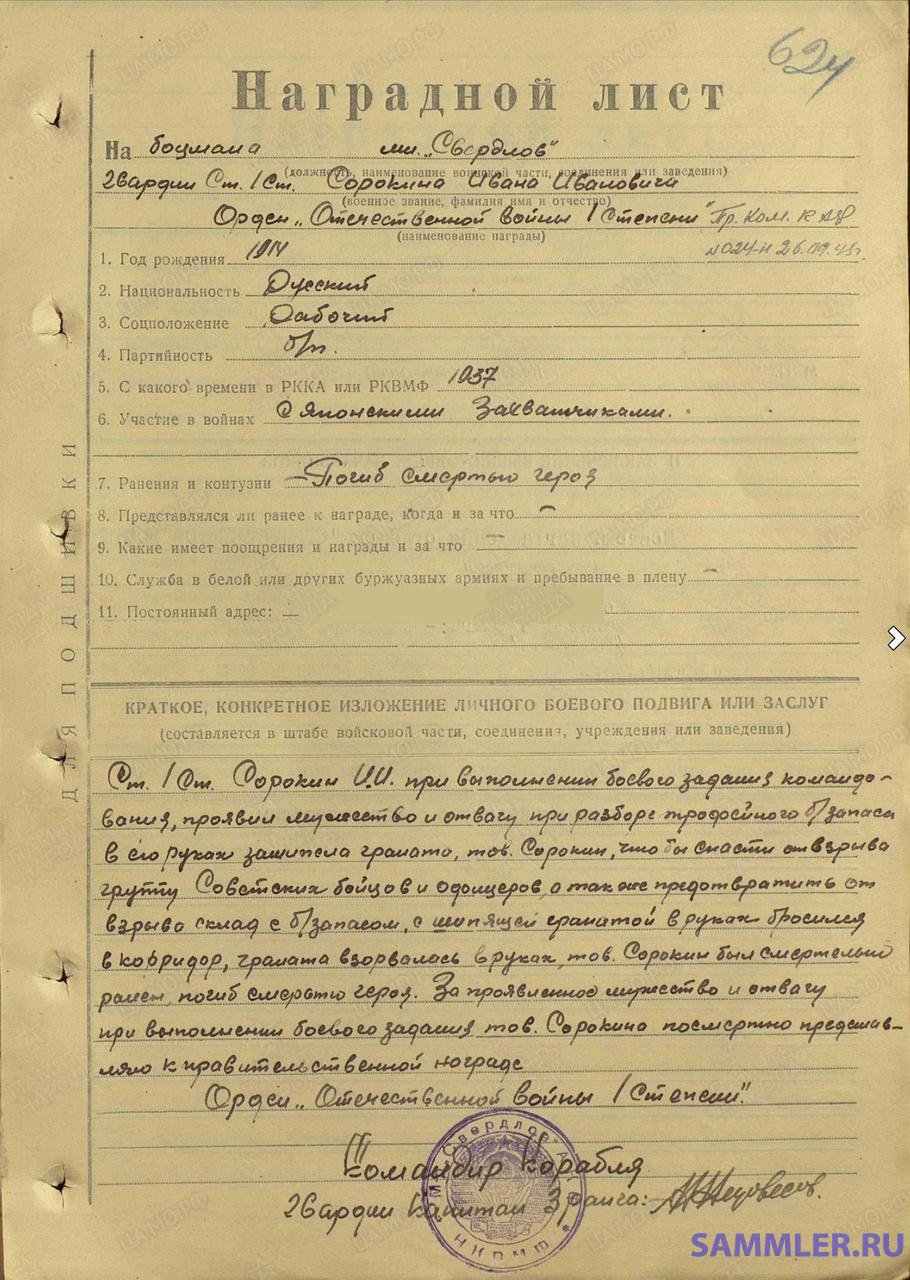 62
Наградной лист
На боцмана мн. „Свердлов"
(должность, наименование воинской части, соединения или заведения)
гвардии Ст. 1 Ст. Сорокина Ивана Ивановича
(военное звание, фамилия имя и отчество)
Орден „Отечественной войны 1 Степени" Пр. Ком. КАФ
(наименование награды)
№024-н 26.09.45г.
1. Год рождения 1914
2. Национальность Русский
3. Соцположение Рабочий
4. Партийность б/п.
5. С какого времени в РККА или РКВМФ 1937
6. Участие в войнах С Японскими Захватчиками.
7. Ранения и контузии – Погиб смертью героя
8. Представлялся ли ранее к награде, когда и за что –
9. Какие имеет поощрения и награды и за что –
10. Служба в белой или других буржуазных армиях и пребывание в плену –
11. Постоянный адрес: –
ДЛЯ ПОДШИВКИ
КРАТКОЕ, КОНКРЕТНОЕ ИЗЛОЖЕНИЕ ЛИЧНОГО БОЕВОГО ПОДВИГА ИЛИ ЗАСЛУГ
(составляется в штабе войсковой части, соединения, учреждения или заведения)
Ст. 1 Ст. Сорокин И.И. при выполнении боевого задания командо-
вания, проявил мужество и отвагу при разборе трофейного б/запаса
в его руках зашипела граната, тов. Сорокин, что бы спасти от взрыва
группу Советских бойцов и офицеров, а также предотвратить от
взрыва склад с б/запасом, с шипящей гранатой в руках бросился
в корридор, граната взорвалась в руках, тов. Сорокин был смертельно
ранен, погиб смертью героя. За проявленное мужество и отвагу
при выполнении боевого задания тов. Сорокина посмертно представ-
ляю к правительственной награде
Орден „Отечественной войны 1 Степени".
Командир Корабля
гвардии Капитан 3 ранга:
Свердлов
НКВМФ
SAMMLER.RU